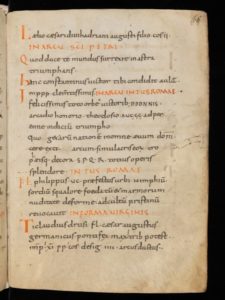 Lelio cæsari diui hadriani augusti filio cos ii
IN ARCU SCI PETRI
Quod duce te mundus surrexit in astra
triumphans
hanc constantinus victor tibi condidit aulā
Imppp clementissimis IN ARCU INTUS ROMAE
felicissimis toto orbe victorib. DDDNNN
arcadio honorio theodosio auggg ad per
enne indiciū triumphi
quo getarū nationē in omne æuum
arcum simulacris eorū tro
peisq. decora S.P.Q.R. totius operis
splendore INTUS ROMAE
Fl philippus uc prefectus urbi nimphiū
sordiū squalore foedatū et marmorum
nuditate deforme ad cultū pristinū
reuocauit IN FORMA VIRGINIS
Ti claudius drusi f cæsar augustus
germanicus pontifex maxi trib potest
imp xi pp cos desig iiii arcus ductus